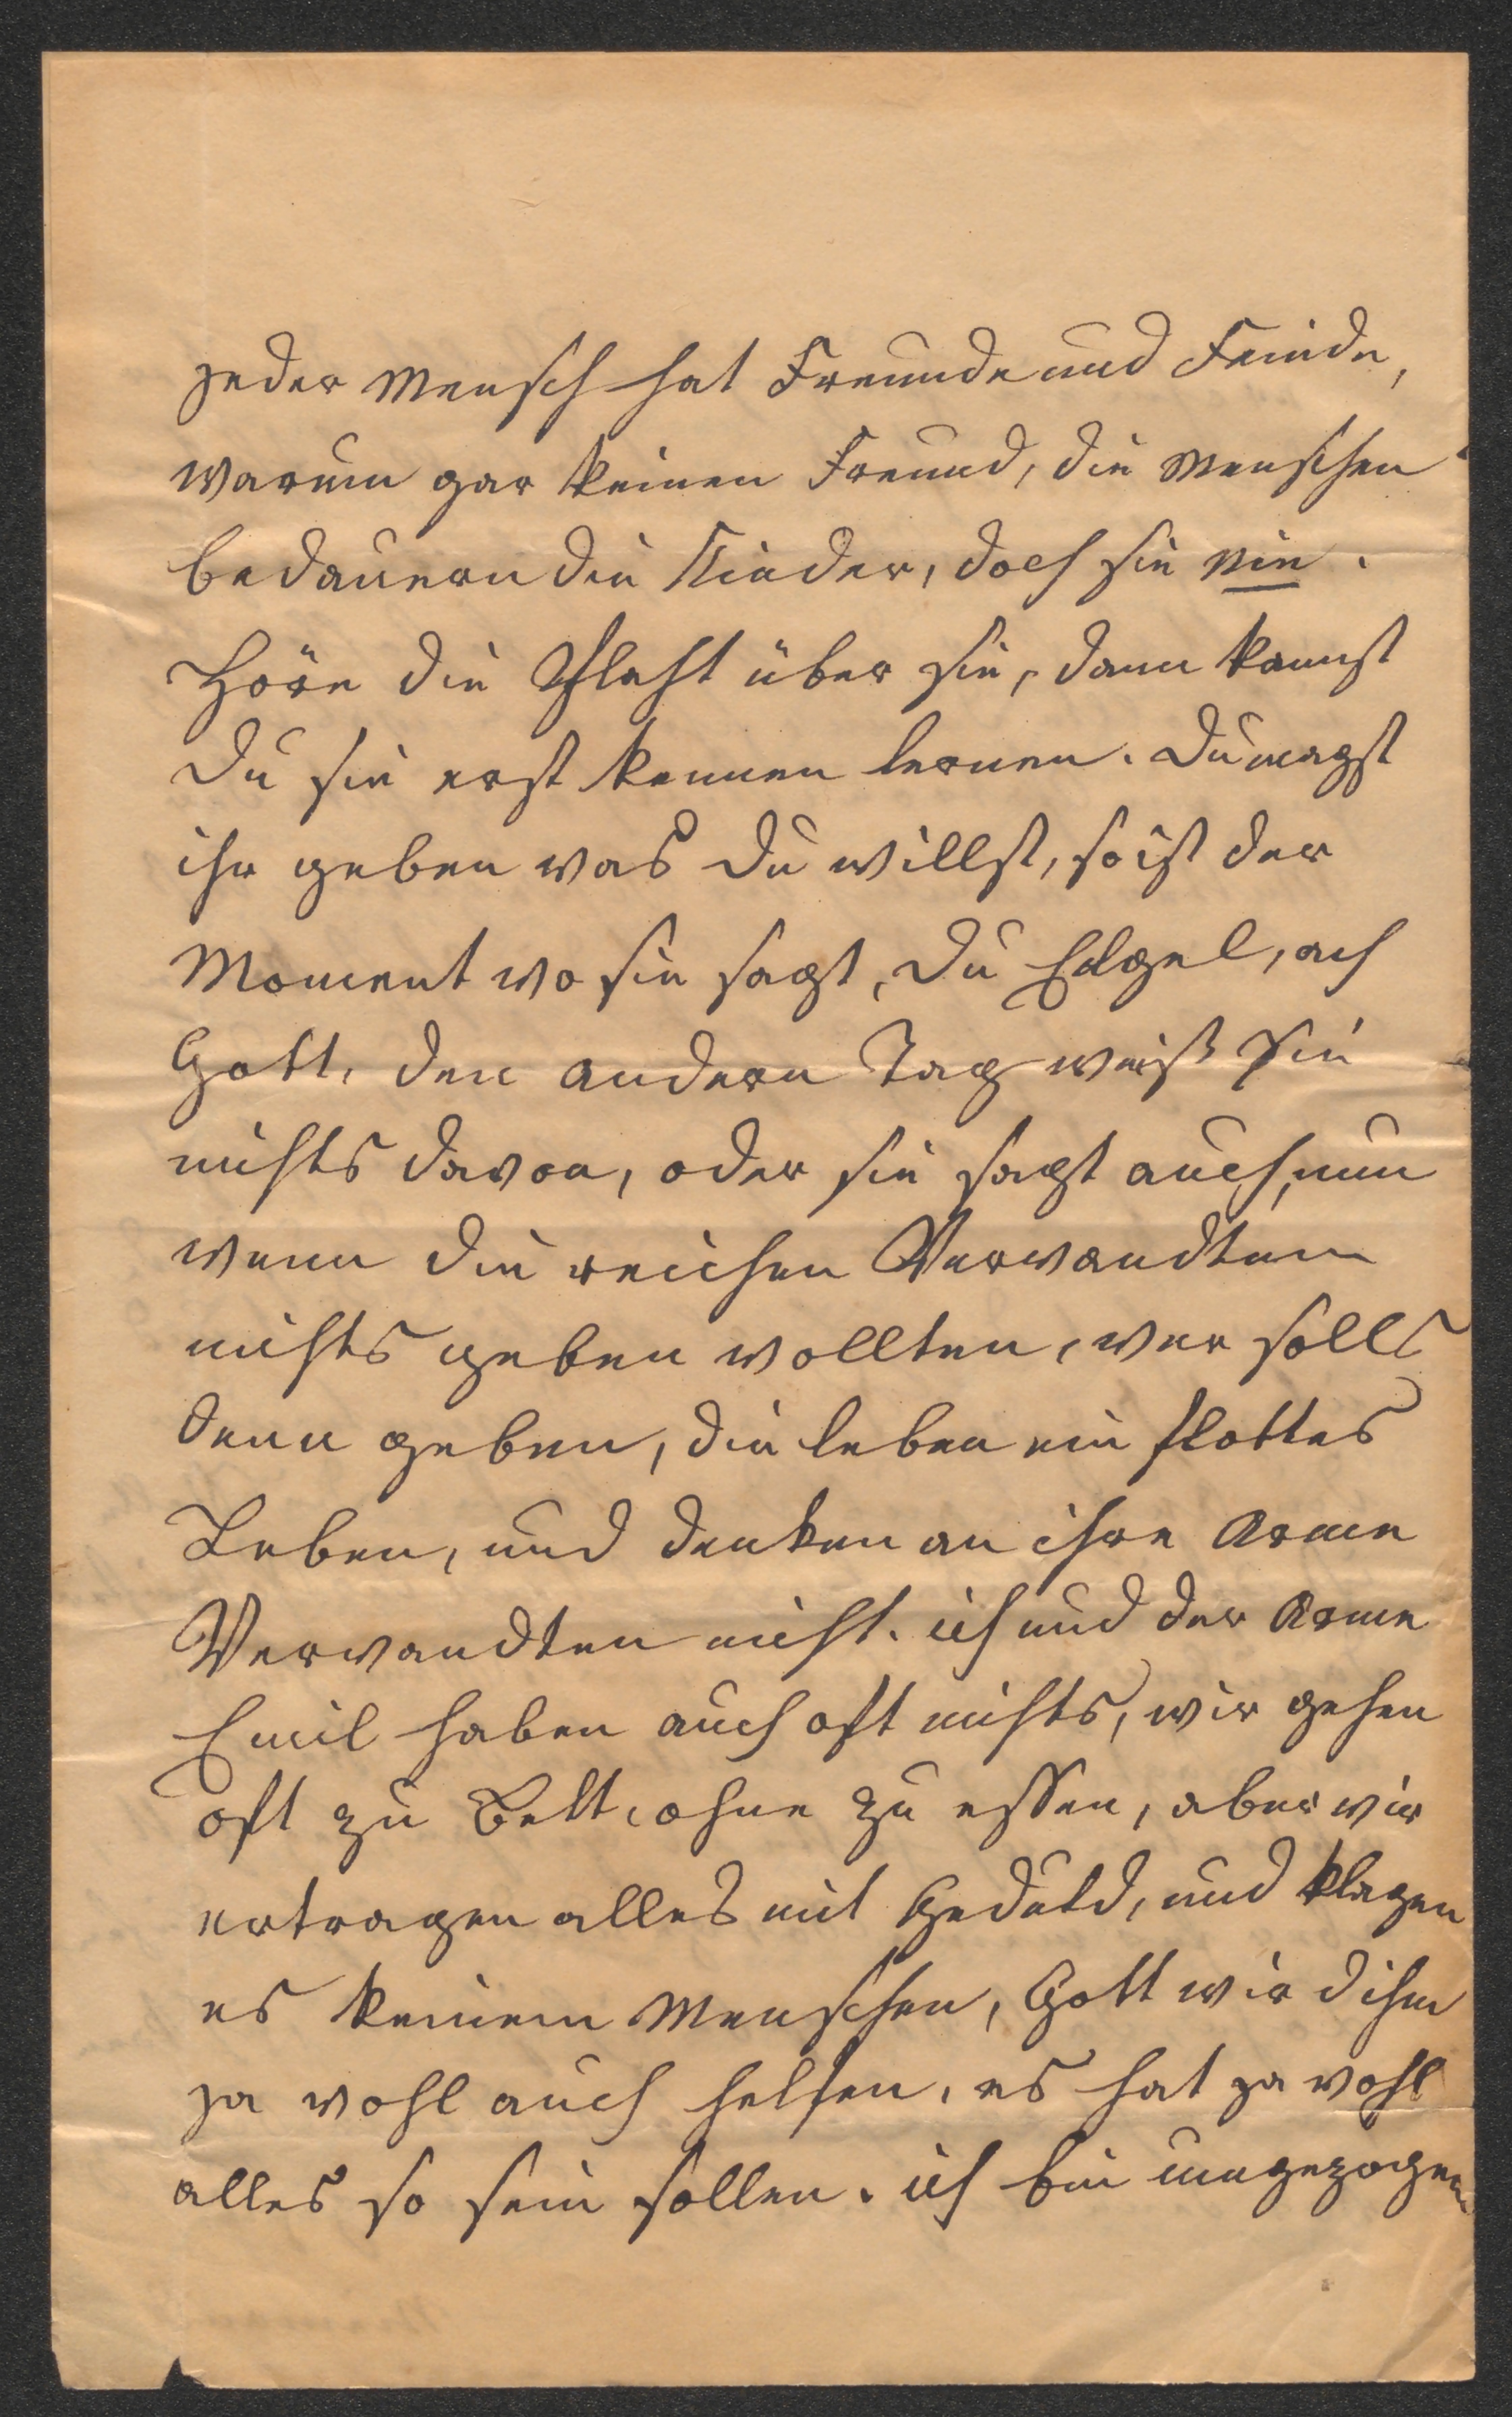 jeder Mensch hat Freunde und Feinde,
warum gar keinen Freund, die Menschen
bedauern die Kinder, doch sie nie.
Höre die über sie, dann kannst
Du sie erst kennen lernen. Du magst
ihr geben was Du willst, so ist der
Moment wo sie sagt, Du Edgel, ach
Gott, den andern Tag weiß sie
nichts davon, oder sie sagt auch, nun
wenn die reichen Verwandten
nichts geben wollten, wer solls
denn geben, die leben ein flottes
Leben, und denken an ihre Arme
Verwandten nicht. ich und der Arme
Emil haben auch oft nichts, wir gehen
oft zu Bett, ohne zu essen, aber wir
ertragen alles mit Geduld, und klagen
es keinem Menschen, Gott wird ihm
ja wohl auch helfen, es hat ja wohl
alles so sein sollen. ich bin umgezogen